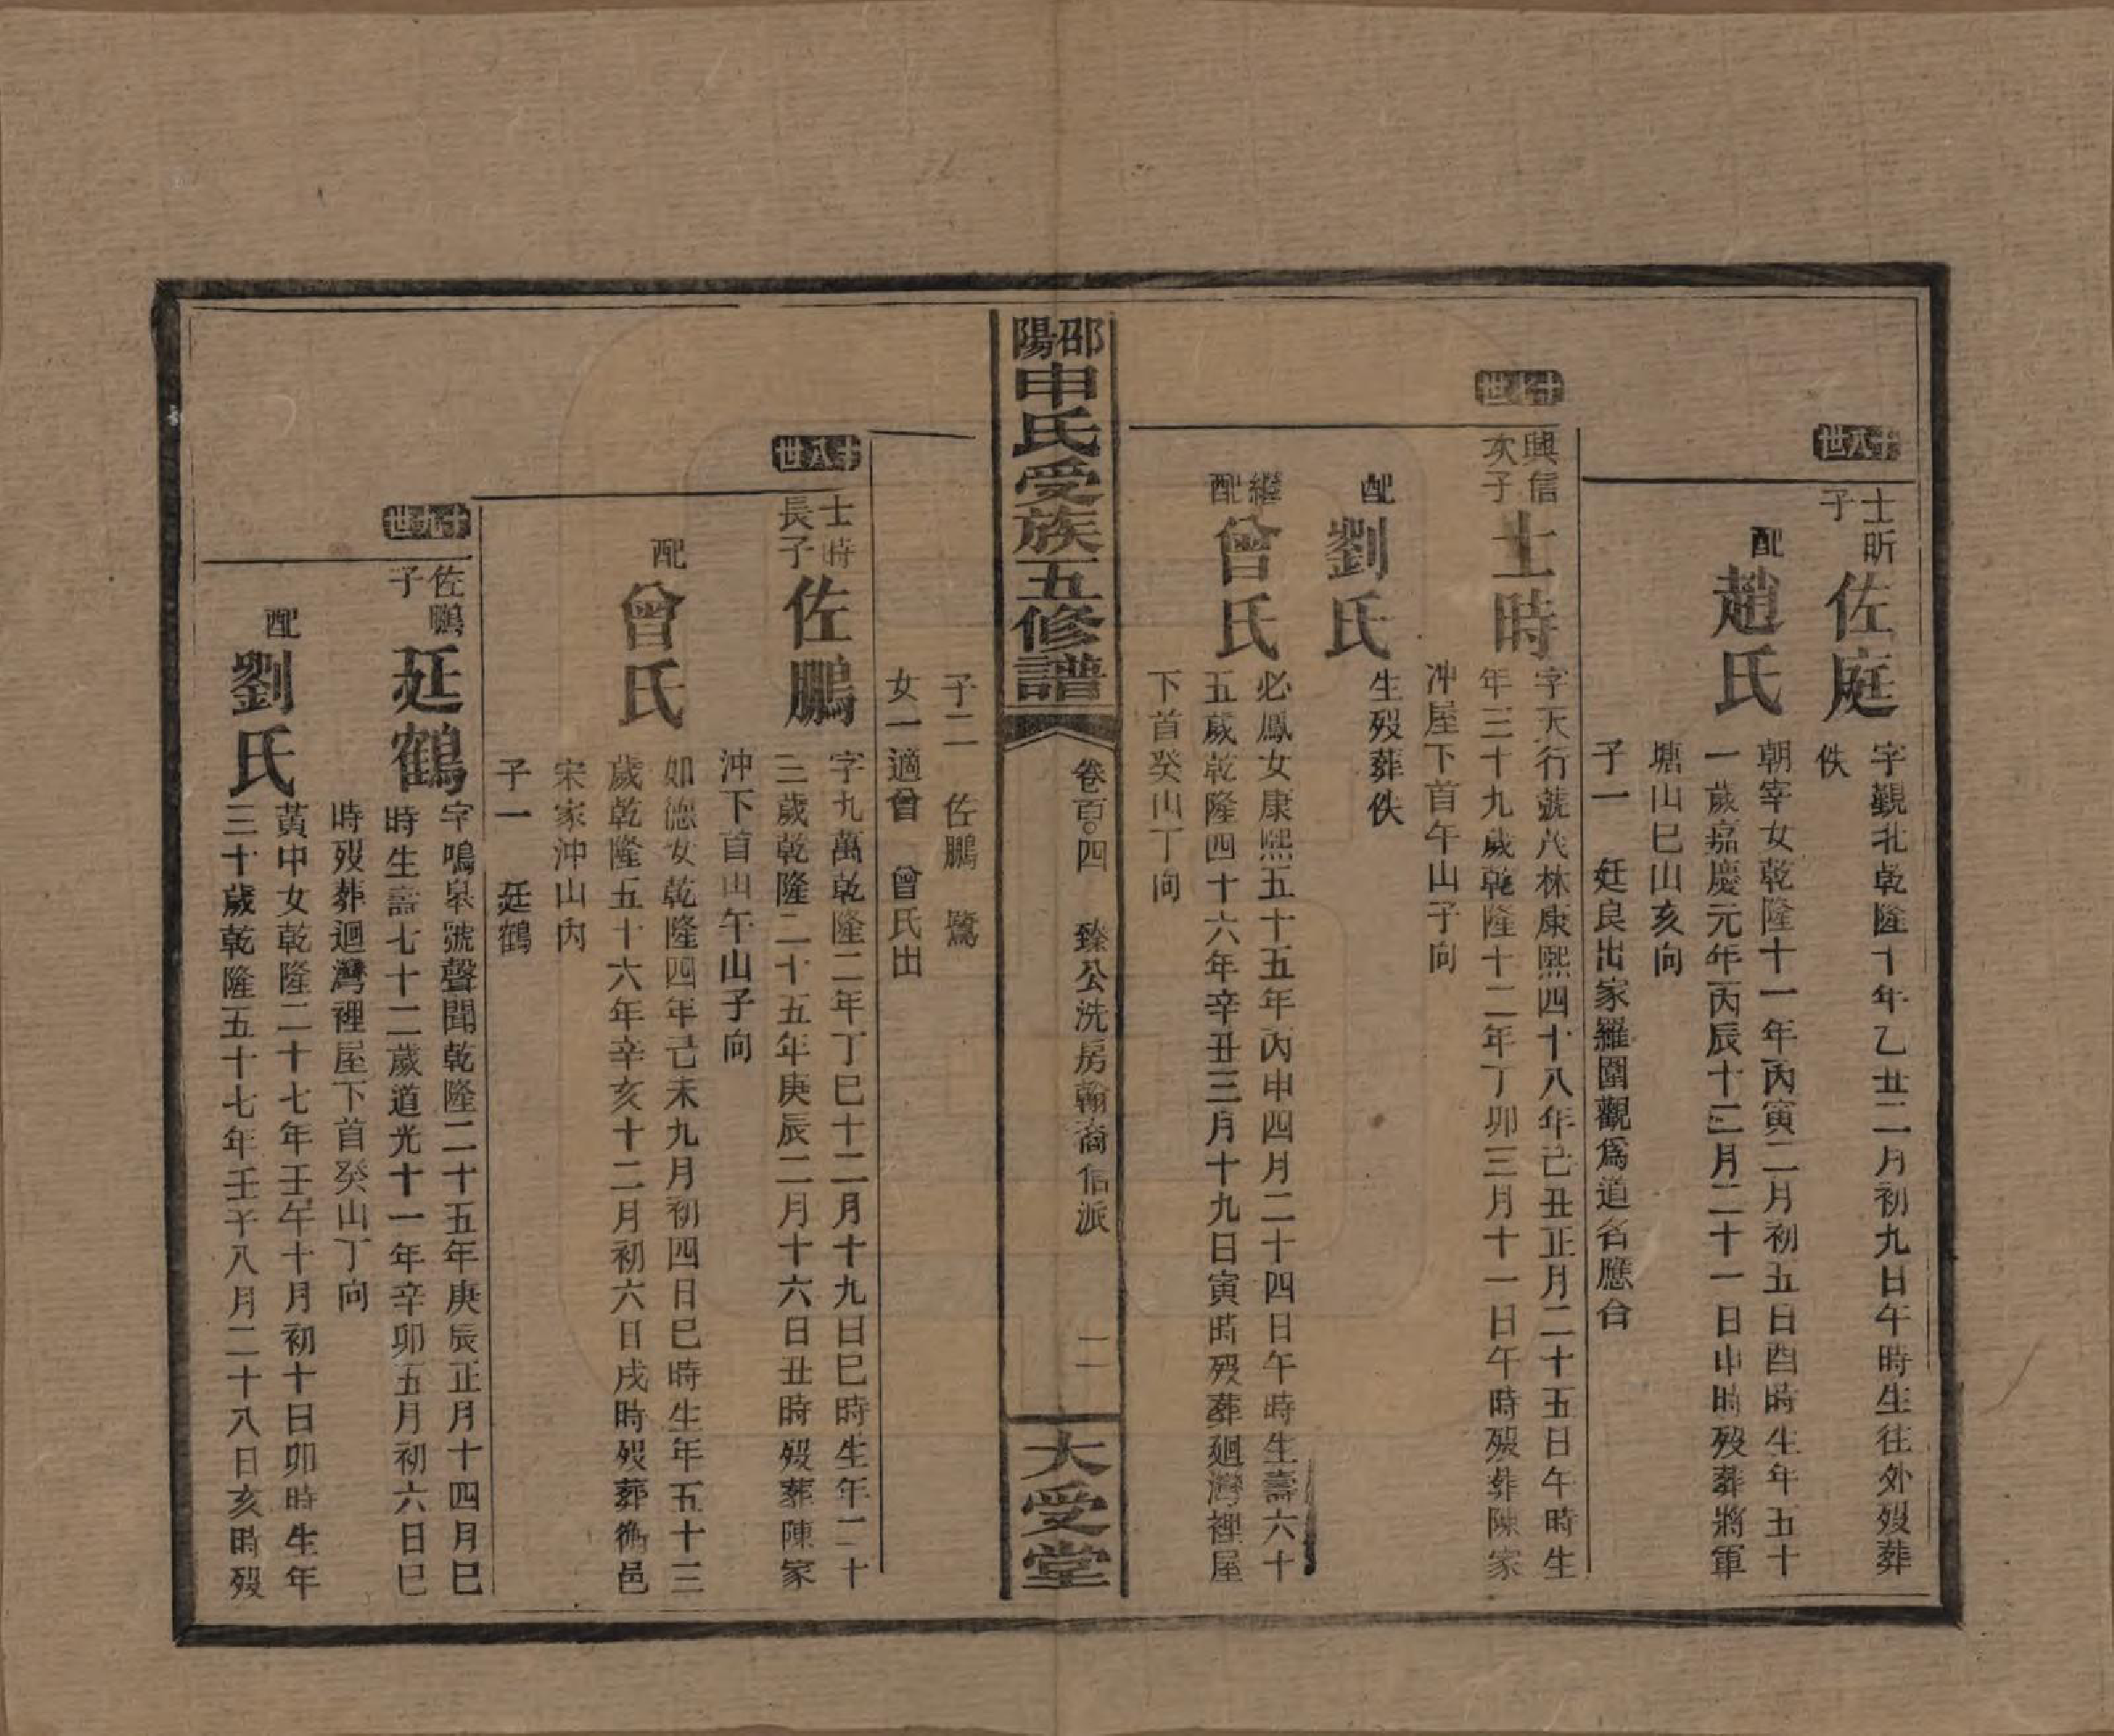 十八世
士昕
子
佐庭
字觀北乾隆十年乙丑二月初九日午時生往外歿葬
佚
配
趙氏
朝宰女乾隆十一年丙寅二月初五日酉時生年五十
一歲嘉慶元年丙辰十二月二十一日申時歿葬將軍
塘山巳山亥向
子一　廷良出家羅圍觀爲道名應台
十七世
興信
次子
士時
字天行號茂林康熙四十八年己丑正月二十五日午時生
年三十九歲乾隆十二年丁卯三月十一日午時歿葬陳家
冲屋下首午山子向
配
劉氏
生歿葬佚
繼
配
曾氏
必鳳女康熙五十五年丙申四月二十四日午時生壽六十
五歲乾隆四十六年辛丑三月十九日寅時歿葬廻灣裡屋
下首癸山丁向
邵陽申氏受族五修譜
卷百〇四　臻公洗房翰裔信派
二
大受堂
子二　佐鵬　鷟
女一適曾　曾氏出
十八世
士時
長子
佐鵬
字九萬乾隆二年丁巳十二月十九日巳時生年二十
三歲乾隆二十五年庚辰二月十六日丑時歿葬陳家
沖下首山午山子向
配
曾氏
如德女乾隆四年己未九月初四日巳時生年五十三
歲乾隆五十六年辛亥十二月初六日戌時歿葬衡邑
宋家沖山內
子一　廷鶴
十九世
佐鵬
子
廷鶴
字鳴皋號聲聞乾隆二十五年庚辰正月十四月巳
時生壽七十二歲道光十一年辛卯五月初六日巳
時歿葬迴灣裡屋下首癸山丁向
配
劉氏
黃中女乾隆二十七年壬午十月初十日卯時生年
三十歲乾隆五十七年壬子八月二十八日亥時歿